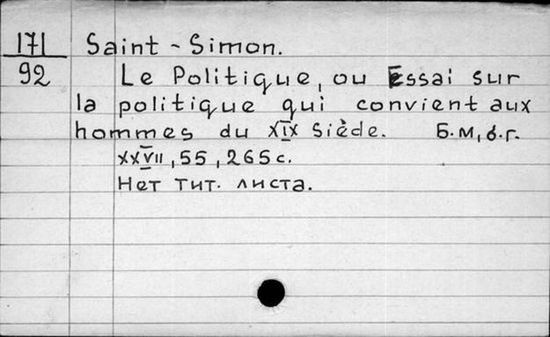 171 Saint - Simon.
92 Le Politique, ou Essai sur
la politique qui convient aux
hommes du XIX Siède. Б.м, б.г.
XXVII, 55, 265 с.
Нет тит. листа.